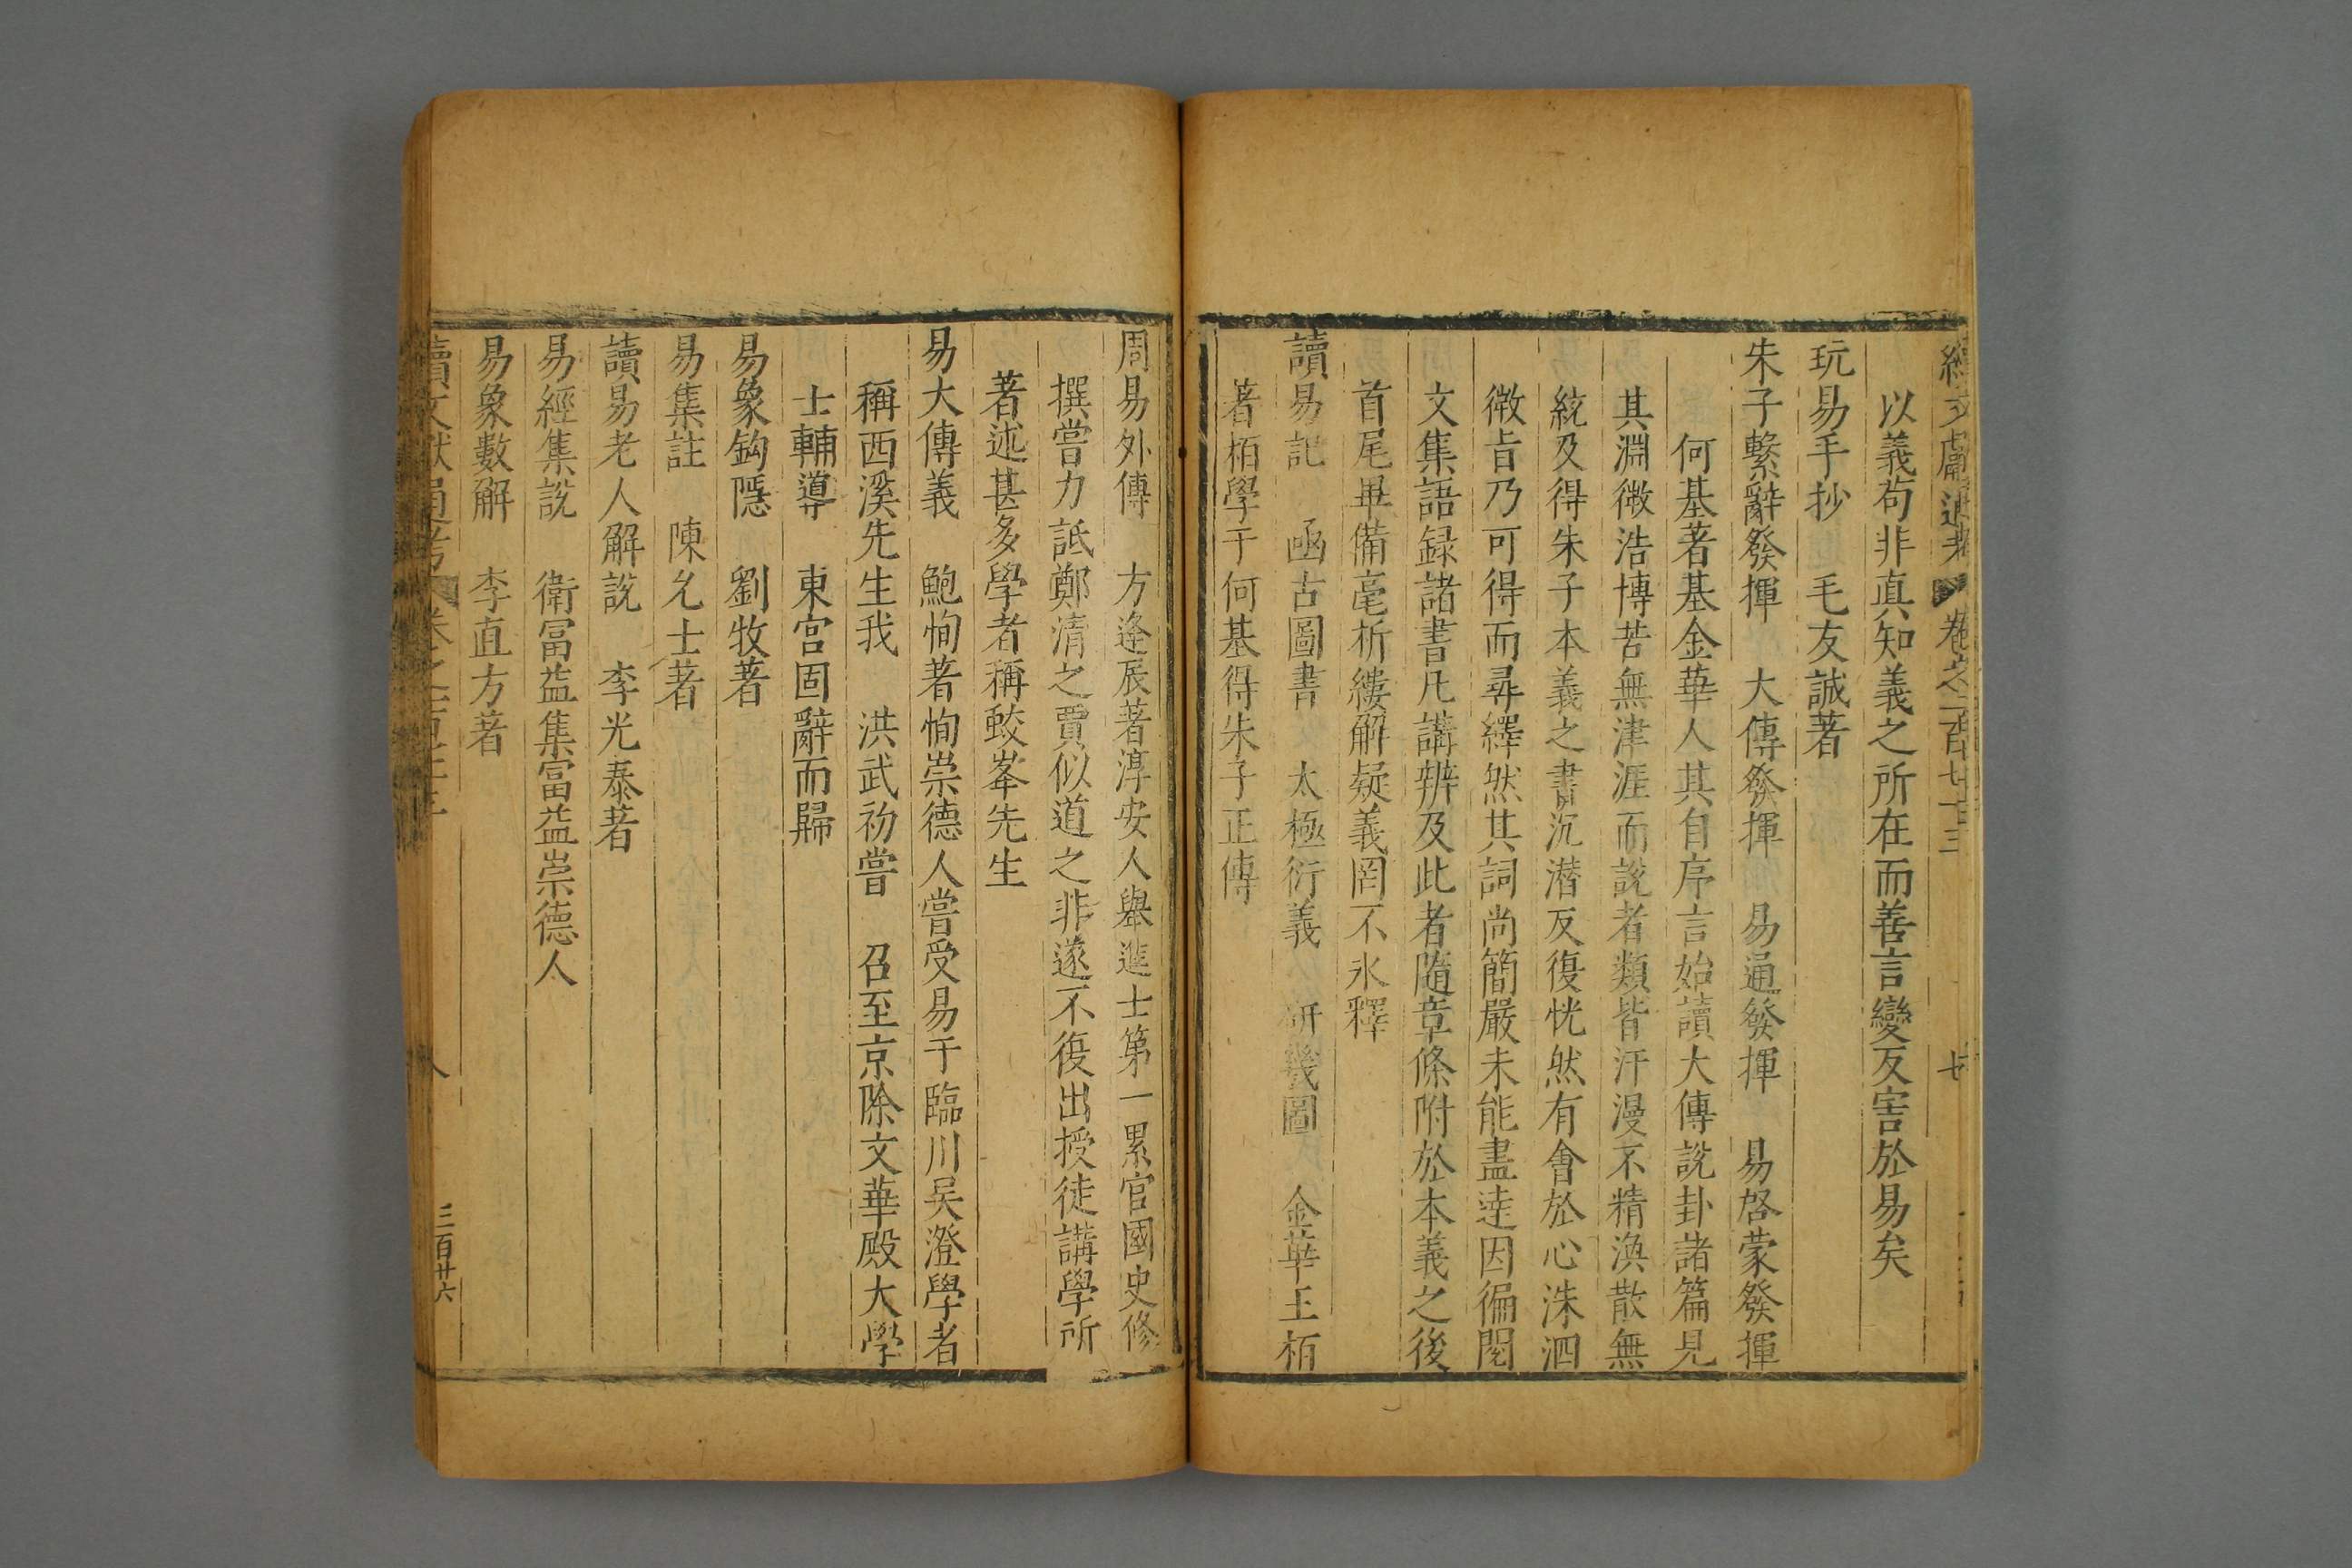 卷之一百七十三
七
以義苟非真知義之所在而善言變反害於易矣
玩易手抄 毛友誠著
朱子繫辭發揮 大傳發揮 易通發揮 易啓蒙發揮
何基著基金華人其自序言始讀大傳說卦諸篇見
其淵微浩博苦無津涯而說者類皆汗漫不精渙散無
統及得朱子本義之書沉潛反復恍然有會於心洙泗
微旨乃可得而尋繹然其詞尚簡嚴未能盡逹因徧閱
文集語録諸書凡講辨及此者隨章條附於本義之後
首尾畢備毫析縷解疑義罔不氷釋
讀易記 凾古圖書 太極衍義 研幾圖 金華王栢
著栢學于何基得朱子正傳
周易外傳 方逢辰著淳安人舉進士第一累官國史修
撰嘗力詆鄭清之賈似道之非遂不復出授徒講學所
著述甚多學者稱蛟峯先生
易大傳義 鮑恂著恂崇德人嘗受易于臨川吴澄學者
稱西溪先生我 洪武初嘗 召至京除文華殿大學
士輔導 東宮固辭而歸
易象鈎隱 劉牧著
易集註 陳允士著
讀易老人解說 李光泰著
易經集說 衛冨益集富益崇德人
易象數解 李直方著
八
三百廿六